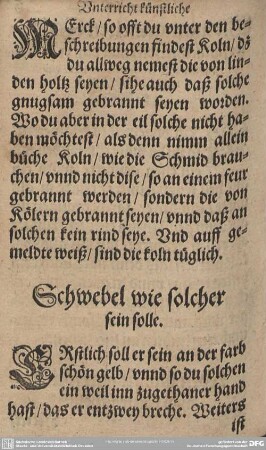 Vnterricht künstliche
MErck / so offt du vnter den be-
schreibungen findest Koln / dz
du allweg nemest die von lin-
den holtz seyen / sihe auch daß solche
gnugsam gebrannt seyen worden.
Wo du aber in der eil solche nicht ha-
ben möchtest / als denn nimm allein
büche Koln / wie die Schmid brau-
chen / vnnd nicht dise / so an einem feur
gebrannt werden / sondern die von
Kölern gebrannt seyen / vnnd daß an
solchen kein rind seye. Vnd auff ge-
meldte weiß / sind die koln tüglich.
Schwebel wie solcher
sein solle.
ERstlich / soll er sein an der farb
schön gelb / vnnd so du solchen
ein weil inn zugethaner hand
hast / das er entzwey breche. Weiters
ist
DFG